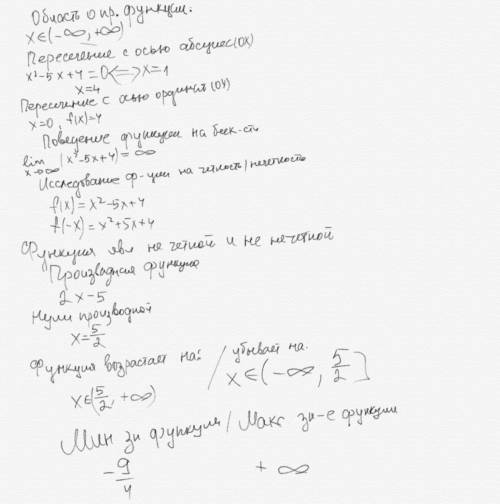 Область опр. функции:
x∈(-∞, +∞)
Пересечение с осью абсцисс(OX)
x²-5x+4=0<=>x=1
x=4
Пересечение с осью ординат(OY)
x=0, f(x)=4
Поведение функции на беск-сти
lim (x²-5x+4)=∞
x→∞
Исследование ф-ции на чётность/нечетность
f(x)=x²-5x+4
f(-x)=x²+5x+4
Функция явл не четной и не нечетной
Производная функции
2x-5
Нули производной
x=5/2
Функция возрастает на: / убывает на.
x∈(5/2, +∞) x∈(-∞, 5/2]
Мин зн функции / Макс зн-е функции
-9/4 +∞